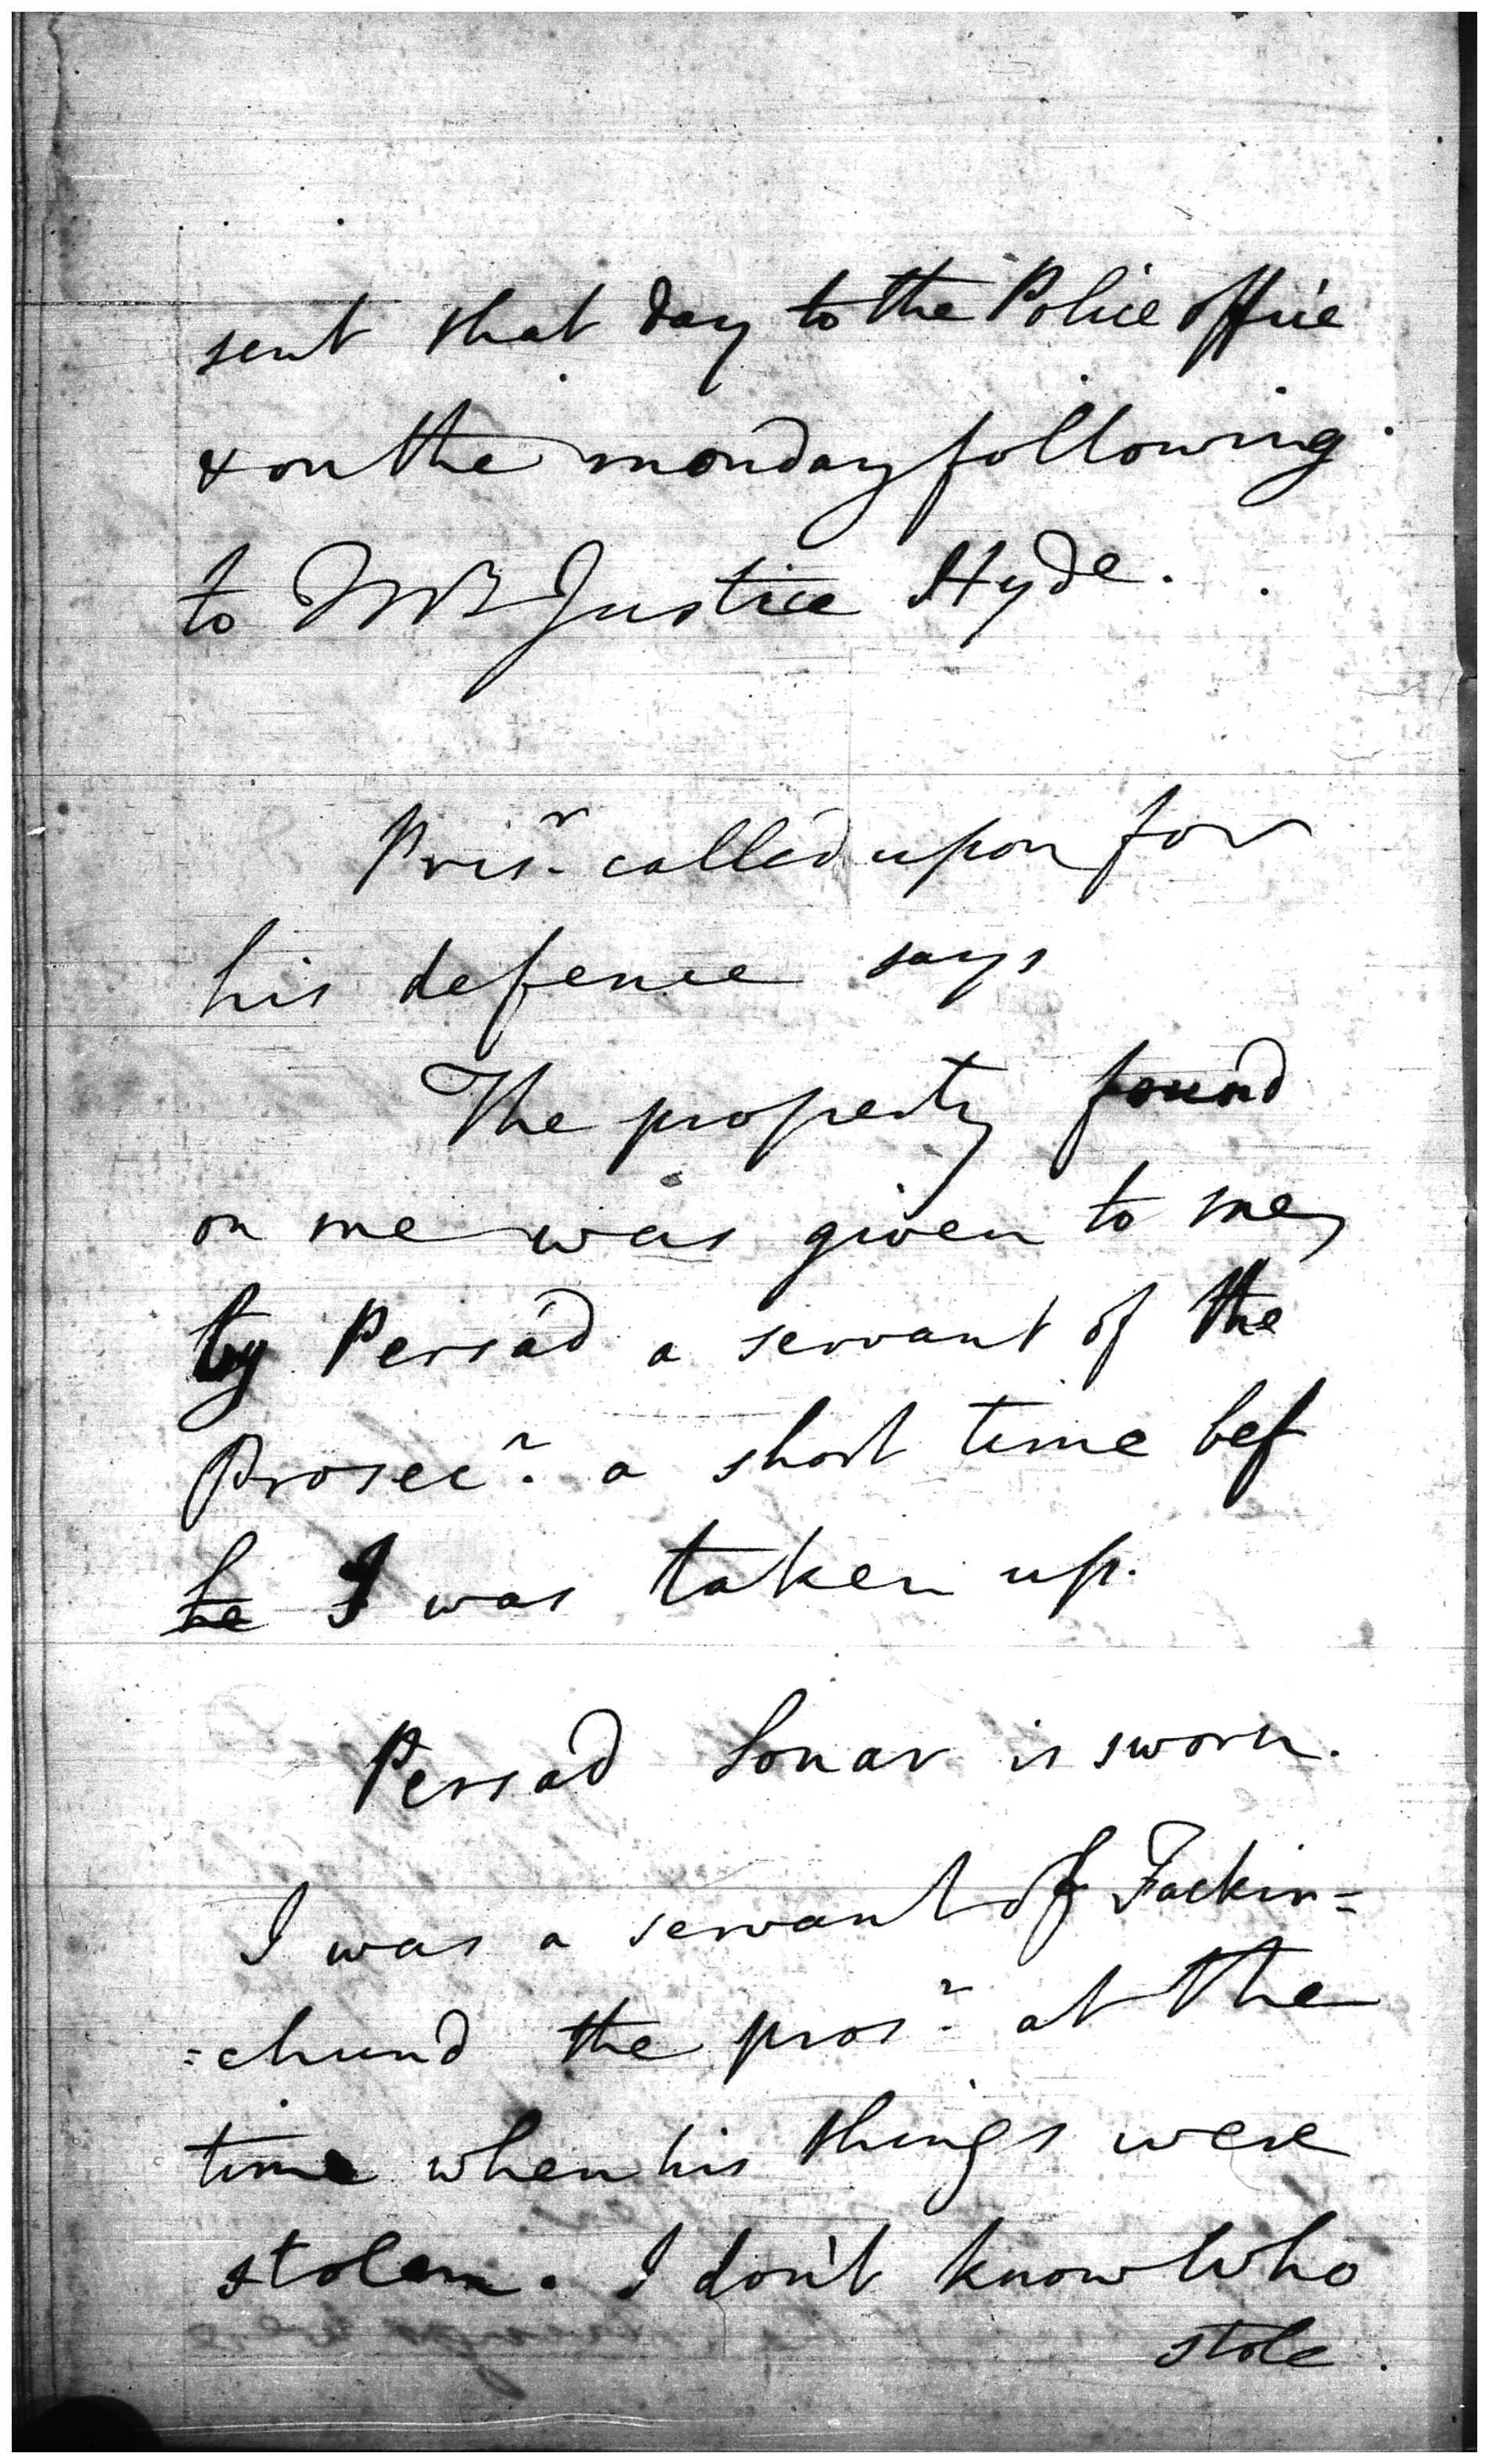 sent that day to the Police office
& on the monday following
to Mr Justice Hyde.
Pris.r called upon for
his defence says
The property found
on me was given to me
by Persad a servant of the
Prosec.r a short time bef
he I was taken up.
Persad Sonar is sworn.
I was a servant of Fackir=
=chund the pros.r at the
time when his things were
stolen. I don't know who
stole.